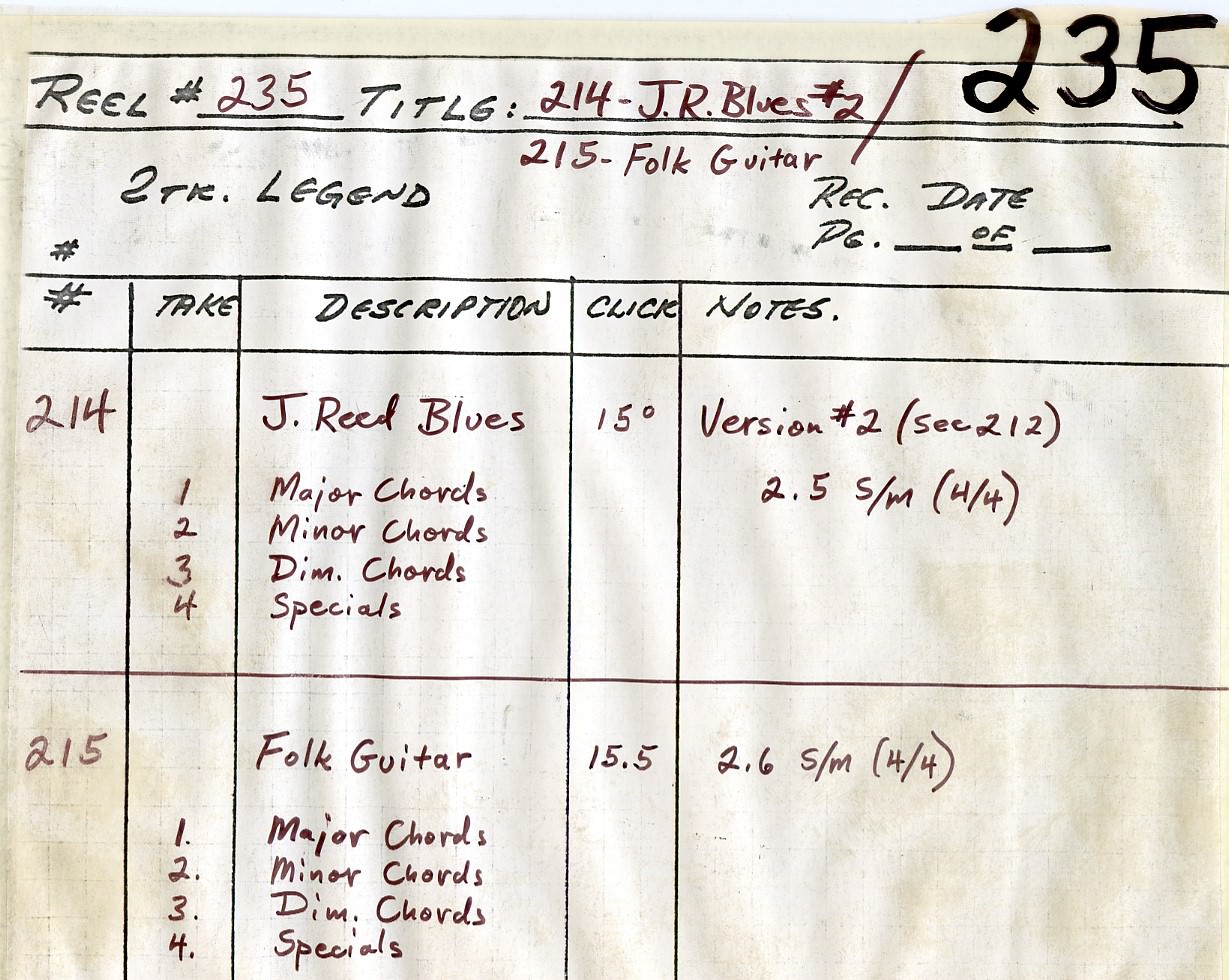 235
REEL # 235 TITLE: 214-J.R. Blues #2 /
215- Folk Guitar
2TK. LEGEND REC. DATE
# PG. ___ OF ___
# TAKE DESCRIPTION CLICK NOTES.
214 J. Reed Blues 15° Version #2 (see 212)
1 Major Chords 2.5 S/m (4/4)
2 Minor Chords
3 Dim. Chords
4 Specials
215 Folk Guitar 15.5 2.6 S/m (4/4)
1. Major Chords
2. Minor Chords
3. Dim. Chords
4. Specials